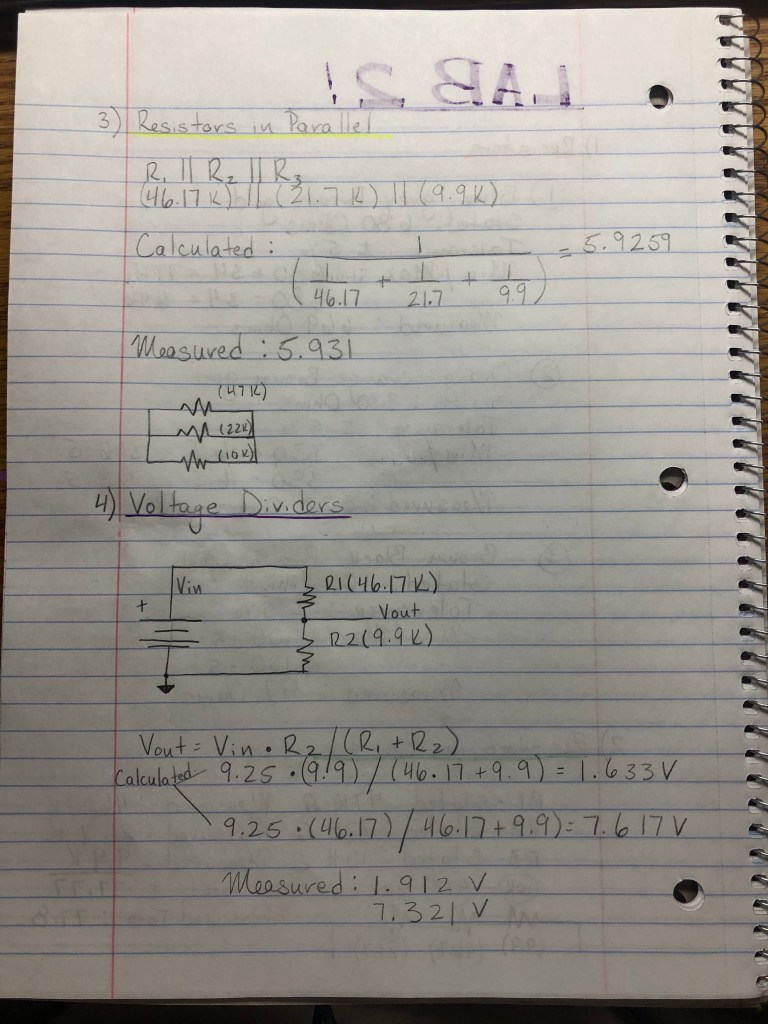 LAB 2!
3) Resistors in Parallel
R1 || R2 || R3
(46.17 K) || (21.7 K) || (9.9 K)
Calculated : 1 / (1/46.17 + 1/21.7 + 1/9.9) = 5.9259
Measured : 5.931
(47K)
(22K)
(10K)
4) Voltage Dividers
Vin
R1(46.17K)
+
Vout
R2(9.9K)
Vout = Vin • R2 / (R1 + R2)
Calculated 9.25 • (9.9) / (46.17 + 9.9) = 1.633 V
9.25 • (46.17) / 46.17 + 9.9) = 7.617 V
Measured : 1.912 V
7.321 V